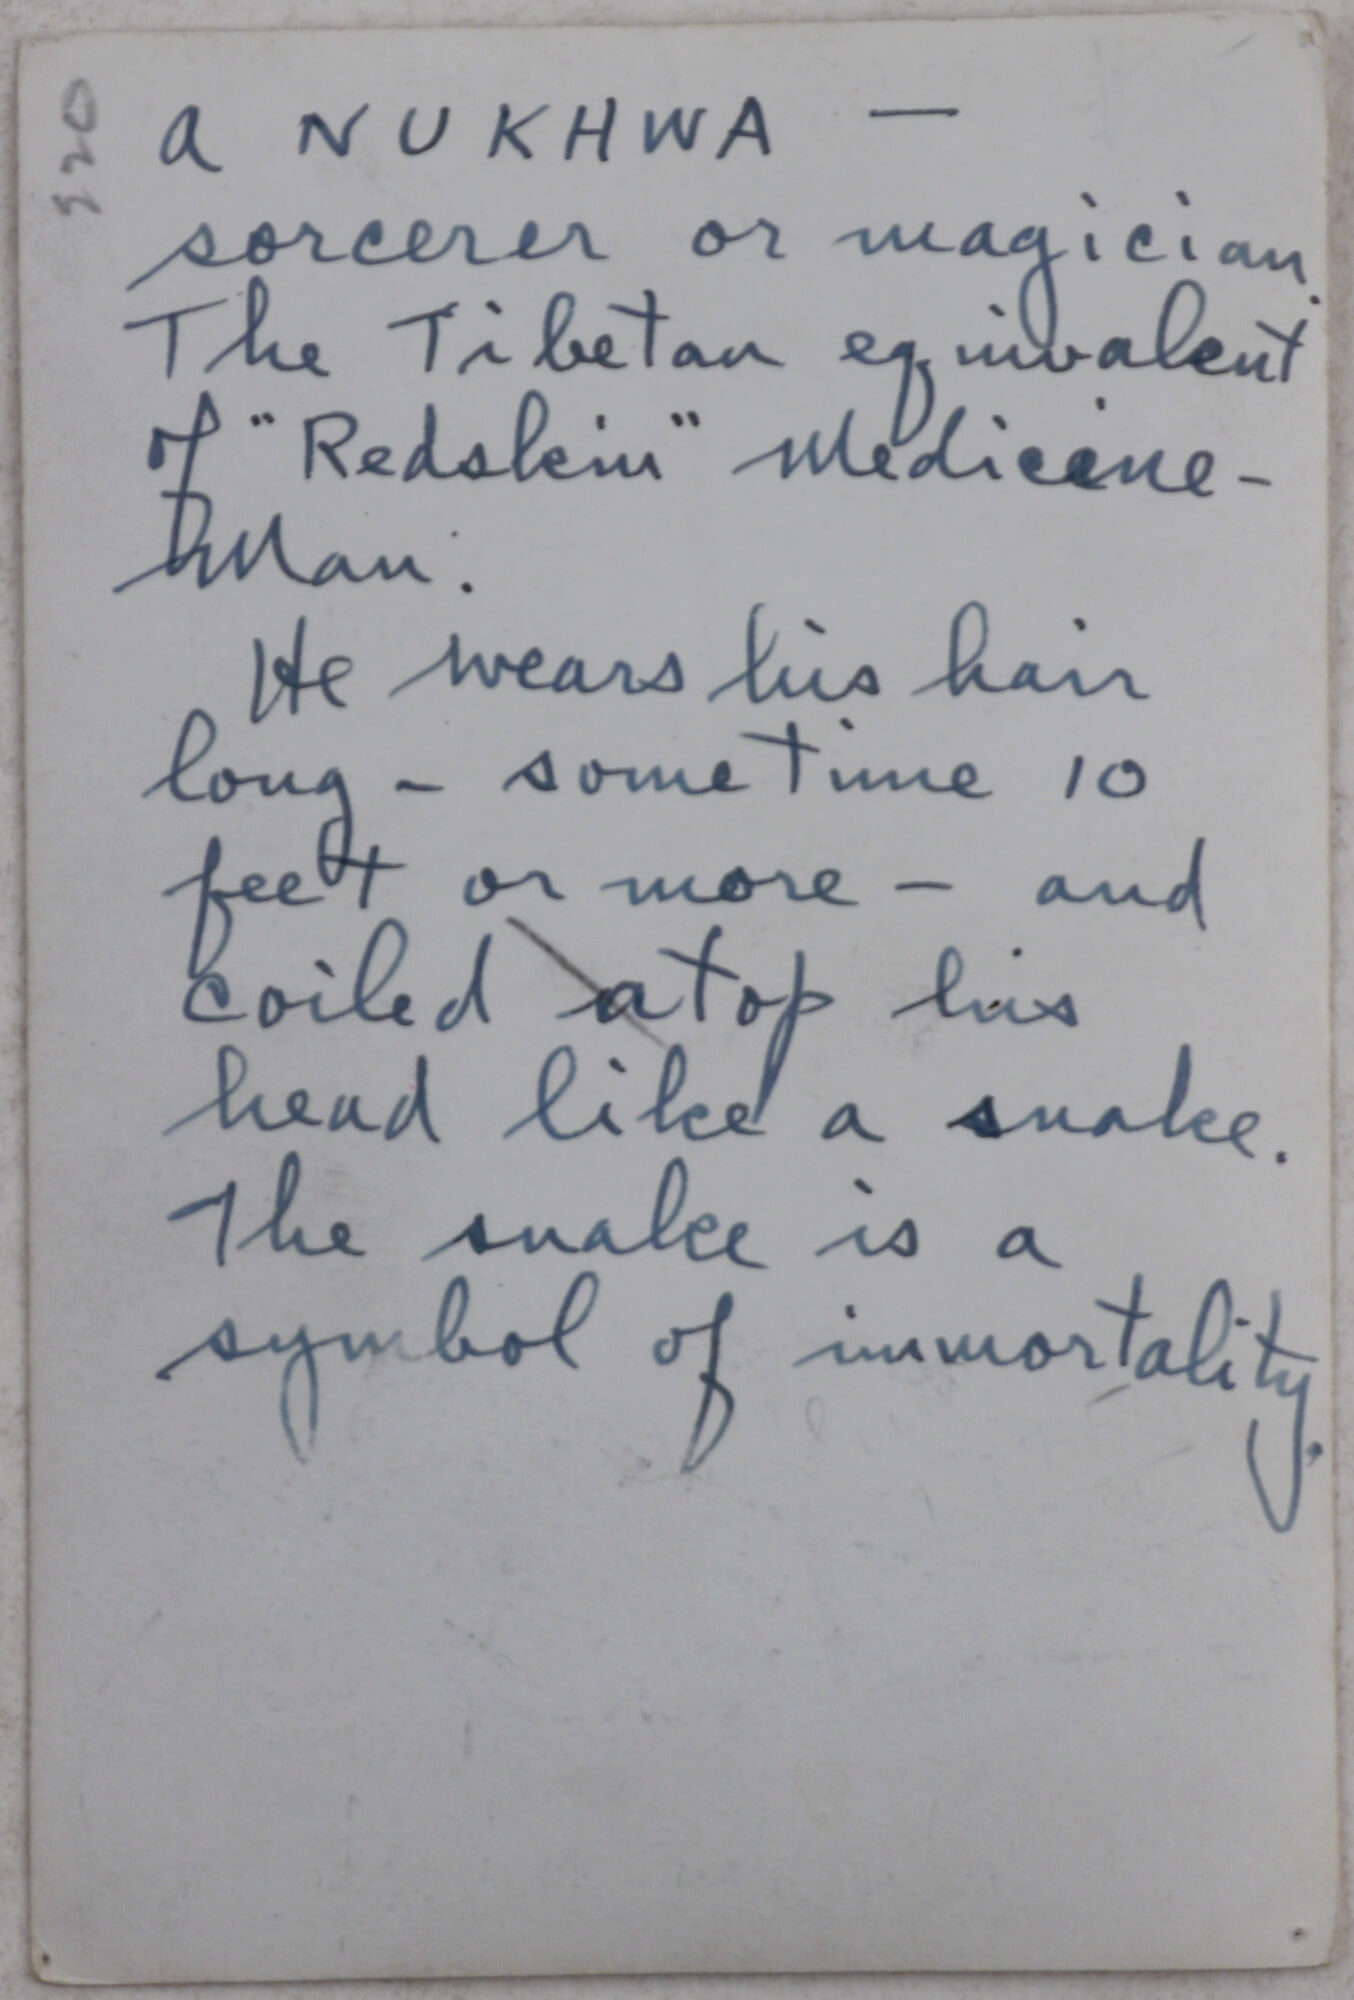 920
a NUKHWA —
sorcerer or magician.
The Tibetan equivalent
of "Redskin" Medicine-
Man.
He wears his hair
long - sometime 10
feet or more - and
coiled atop his
head like a snake.
The snake is a
symbol of immortality.